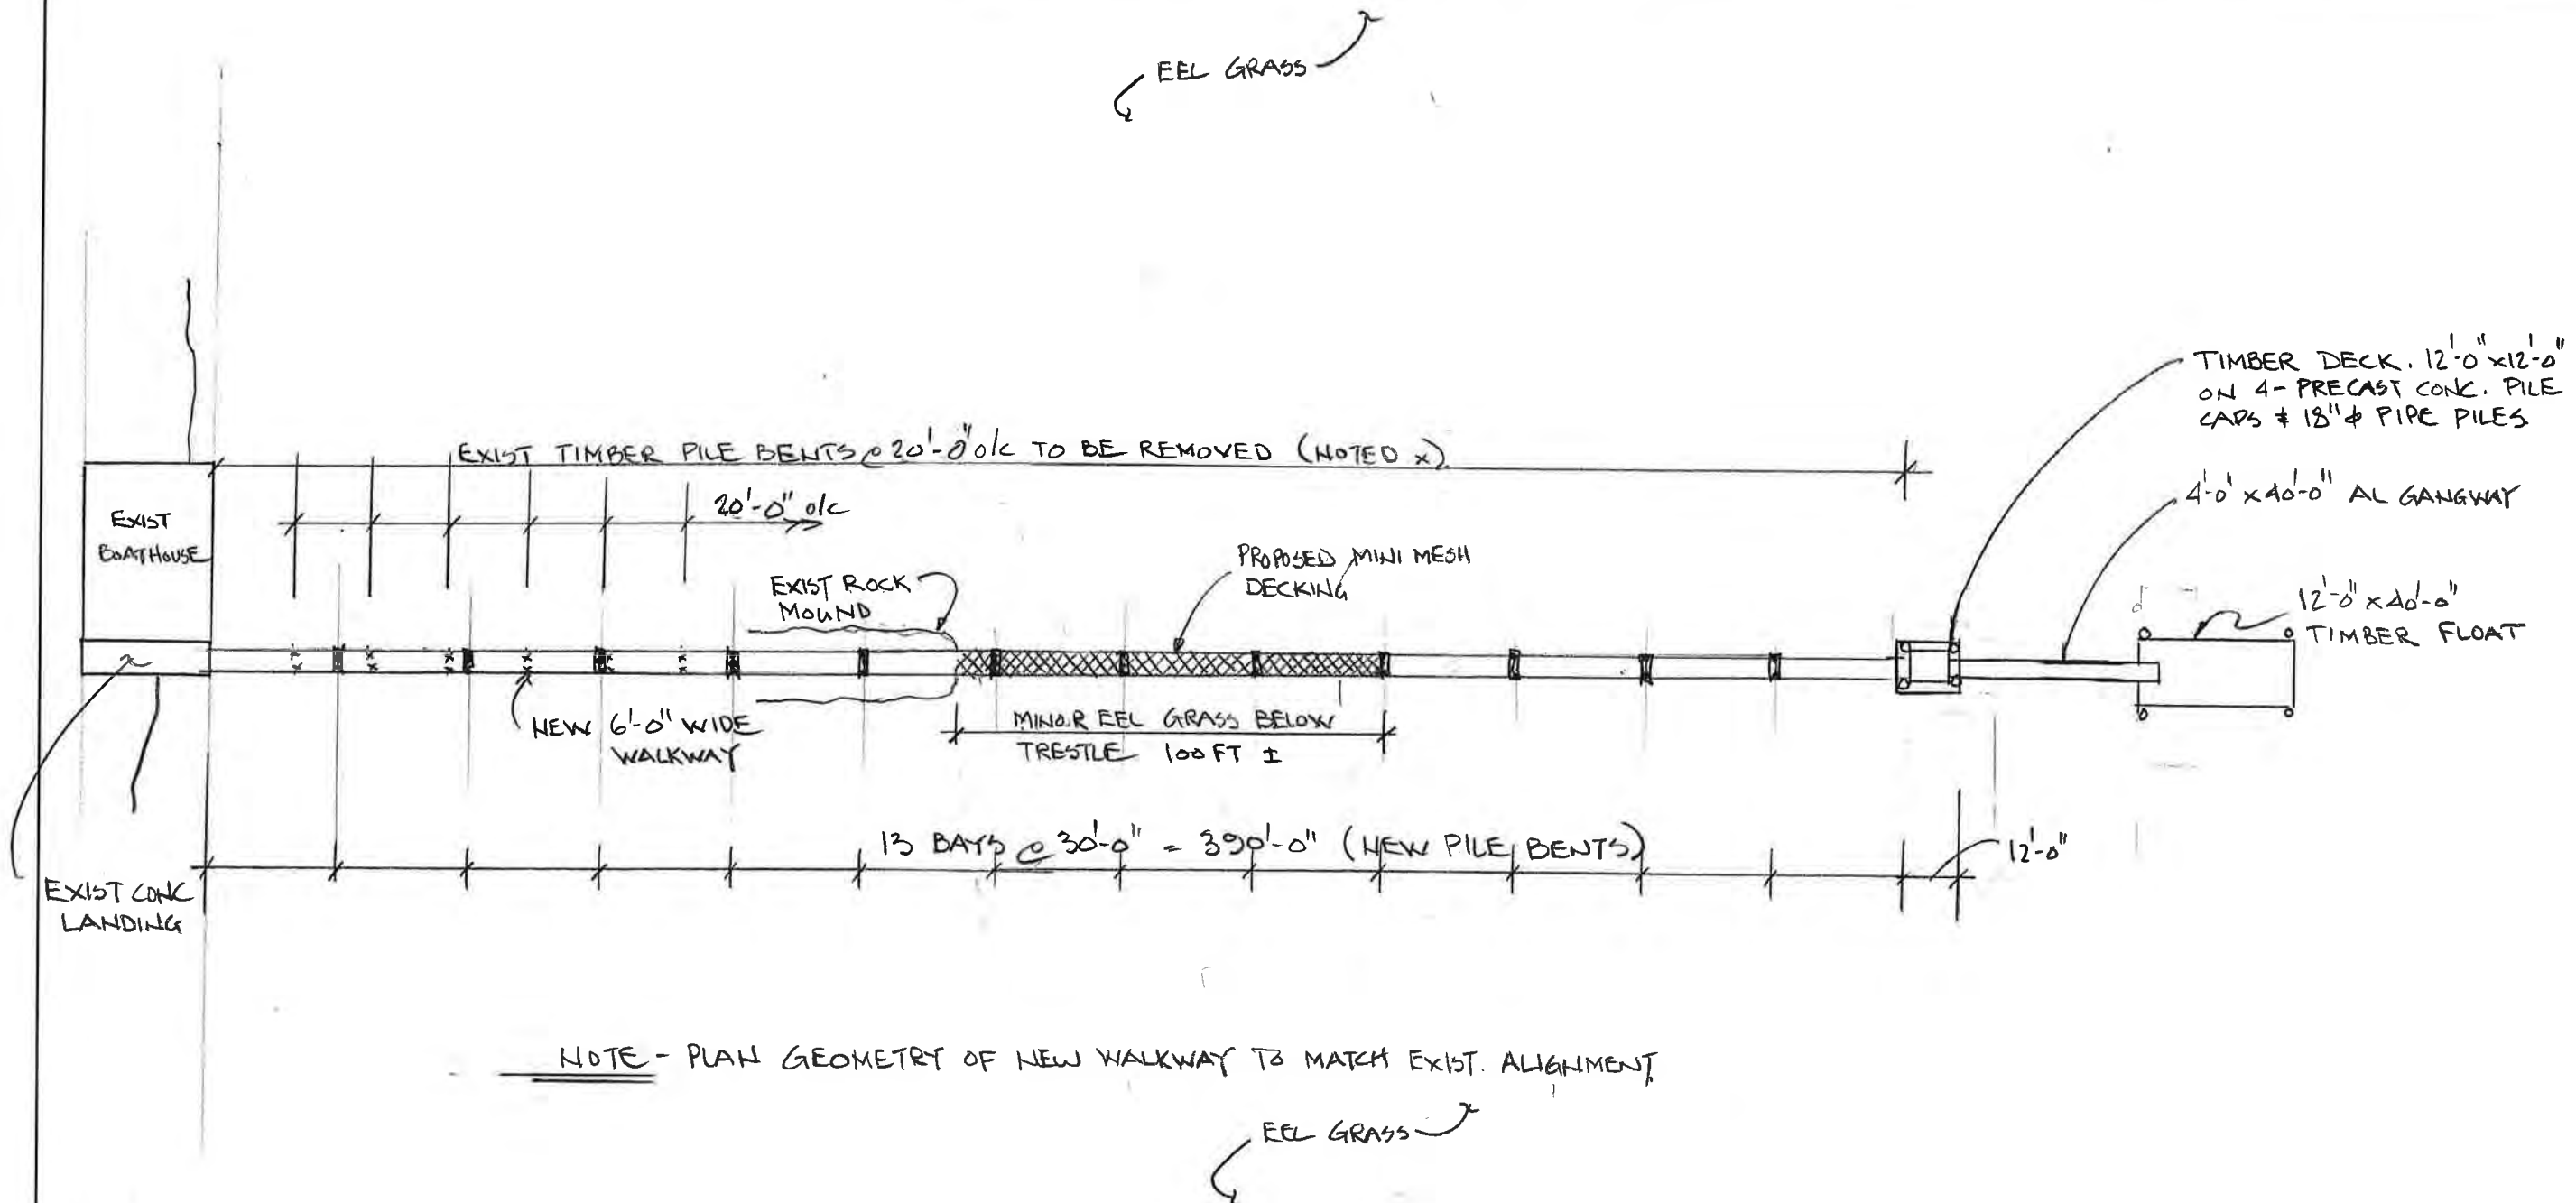 EEL GRASS
TIMBER DECK. 12'-0" x 12'-0"
ON 4- PRECAST CONC. PILE
CAPS & 18" ϕ PIPE PILES
EXIST TIMBER PILE BENTS @ 20'-0" o/c TO BE REMOVED (NOTED x)
4'-0" x 40'-0" AL GANGWAY
20'-0" o/c
EXIST
BOATHOUSE
PROPOSED MINI MESH
DECKING
EXIST ROCK
MOUND
12'-0" x 40'-0"
TIMBER FLOAT
NEW 6'-0" WIDE
WALKWAY
MINOR EEL GRASS BELOW
TRESTLE 100 FT ±
13 BAYS @ 30'-0" = 390'-0" (NEW PILE BENTS)
12'-0"
EXIST CONC
LANDING
NOTE - PLAN GEOMETRY OF NEW WALKWAY TO MATCH EXIST. ALIGNMENT
EEL GRASS